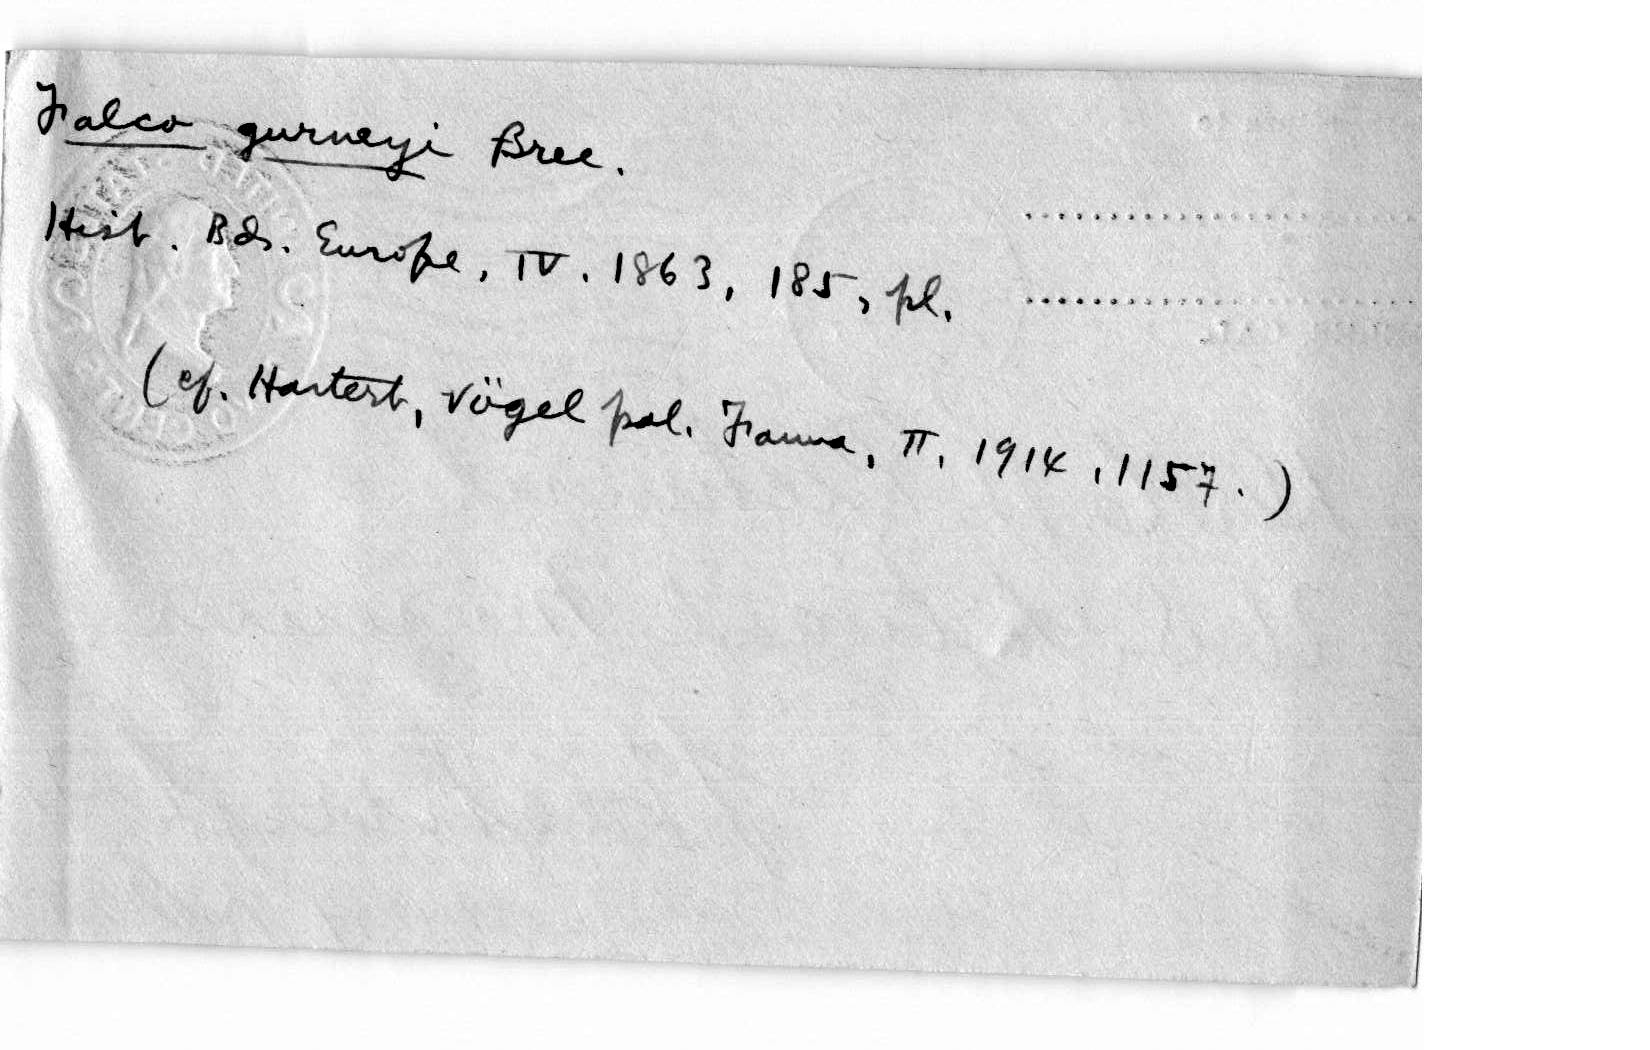 Falco gurneyi Bree.
Hist. Bds. Europe, IV. 1863, 185, pl.
(cf. Hartert, Vögel pal. Fauna, II. 1914, 1157.)